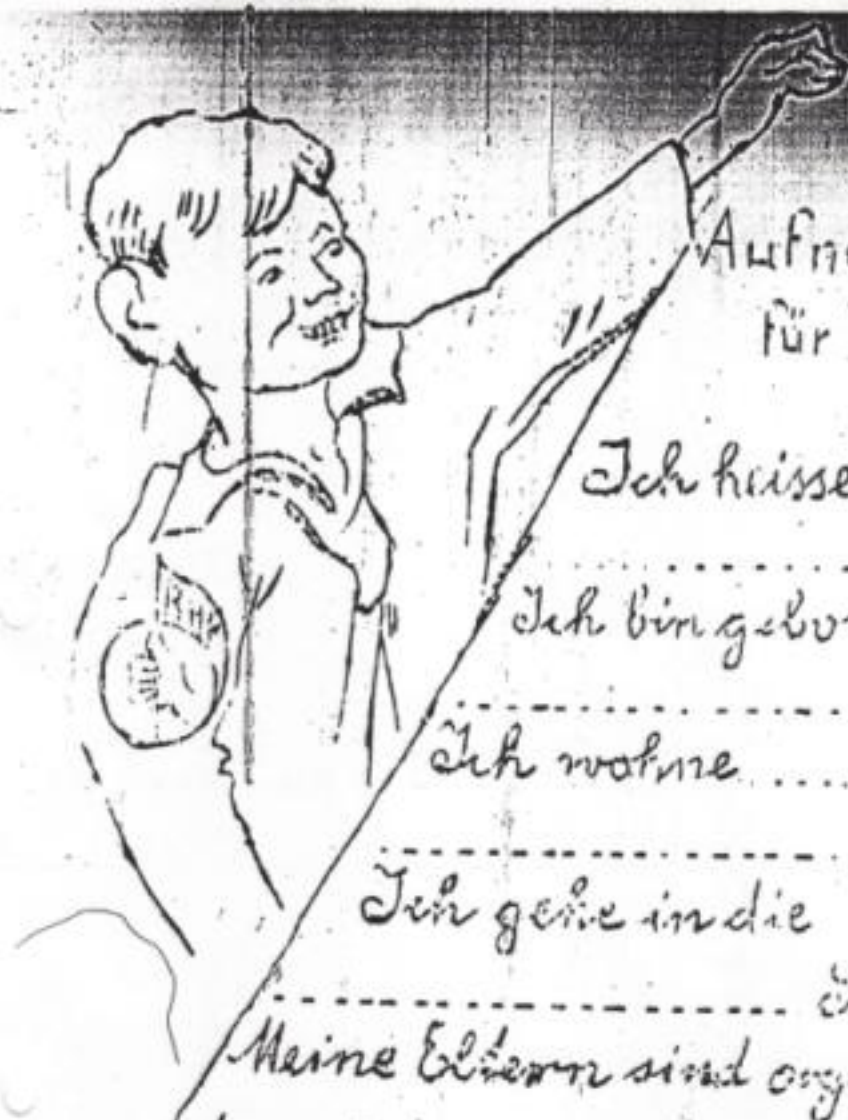 Aufn
für
Ich heisse
Ich bin gebo
Ich wohne
Ich gehe in die
Meine Eltern sind org